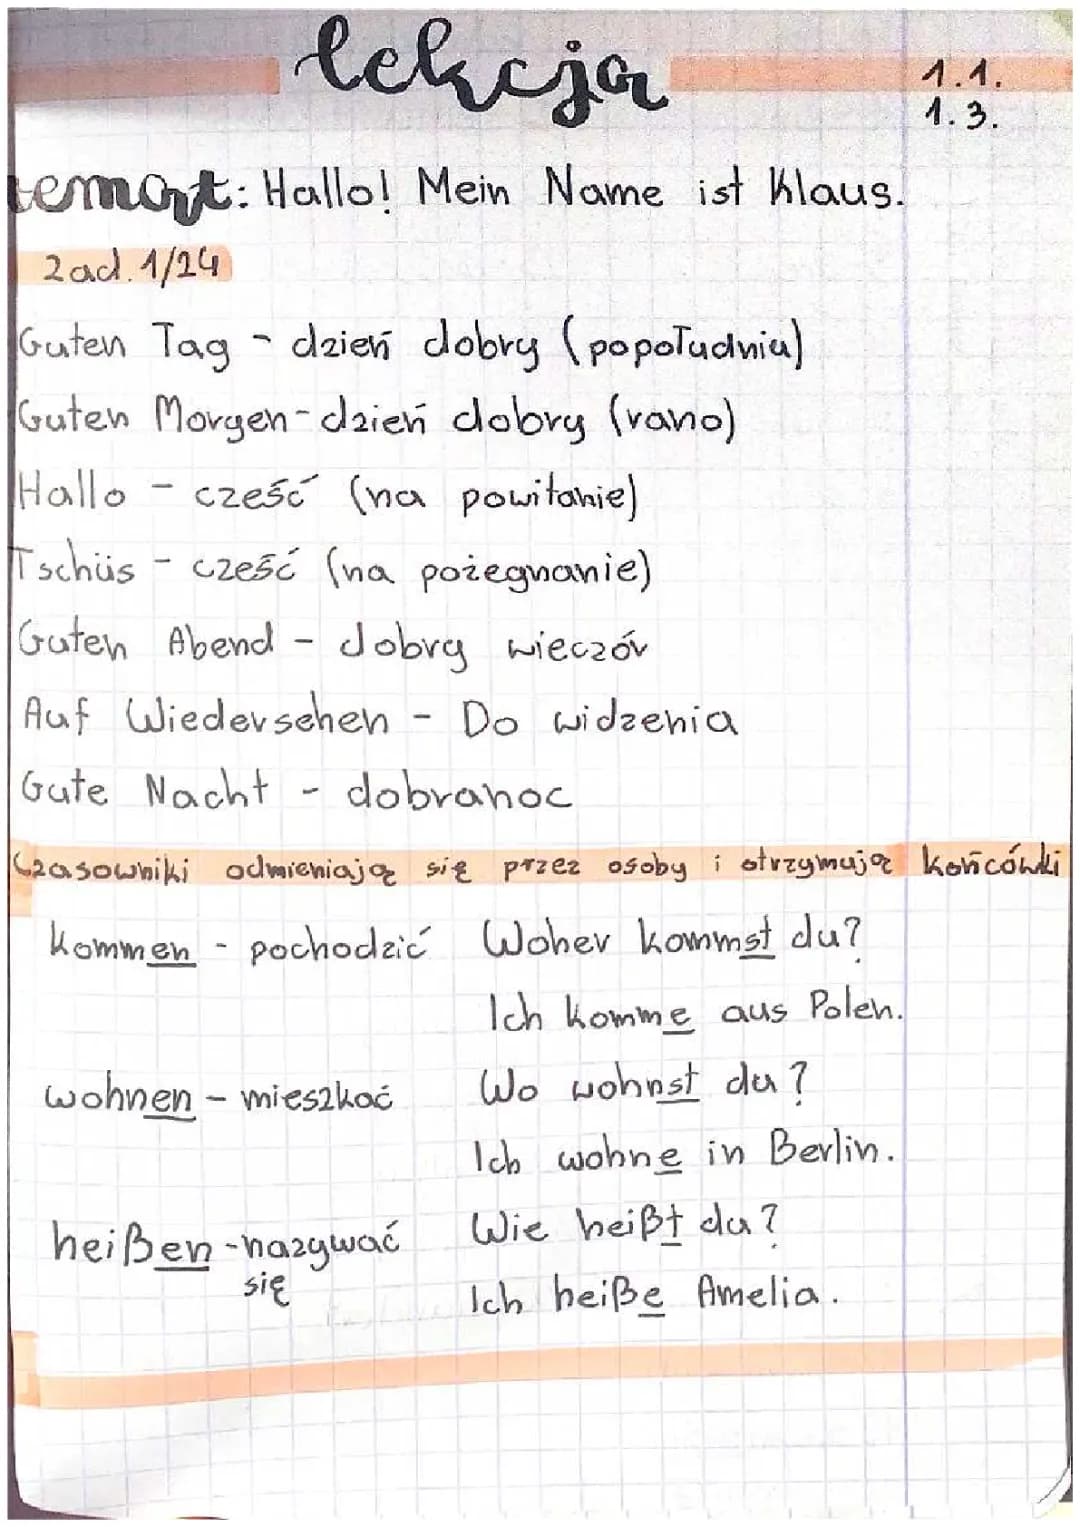 lekcja 1.1.
1.3.
temat: Hallo! Mein Name ist Klaus.
zad. 1/24
Guten Tag - dzień dobry (popołudniu)
Guten Morgen - dzień dobry (rano)
Hallo - cześć (na powitanie)
Tschüs - cześć (na pożegnanie)
Guten Abend - dobry wieczór
Auf Wiedersehen - Do widzenia
Gute Nacht - dobranoc
Czasowniki odmieniają się przez osoby i otrzymują końcówki
kommen - pochodzić Woher kommst du?
Ich komme aus Polen.
wohnen - mieszkać Wo wohnst du?
Ich wohne in Berlin.
heißen - nazywać Wie heißt du?
się Ich heiße Amelia.